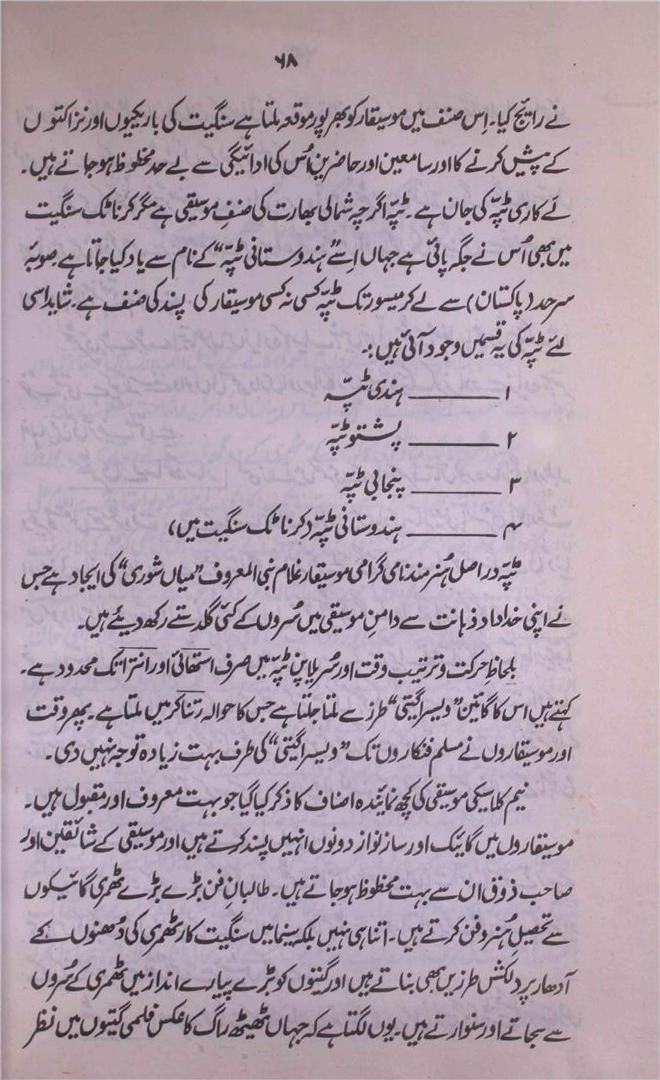 ۶۸
نے رائج کیا۔ اِس صنف میں موسیقار کو بھر پور موقعہ ملتا ہے سنگیت کی باریکیوں اور نزاکتوں
کے پیش کرنے کا اور سامعین اور حاضرین اُس کی ادائیگی سے بے حد محظوظ ہو جاتے ہیں۔
لے کاری ٹپّہ کی جان ہے۔ ٹپّہ اگرچہ شمالی بھارت کی صنفِ موسیقی ہے مگر کرناٹک سنگیت
میں بھی اُس نے جگہ پائی ہے جہاں اِسے "ہندوستانی ٹپّہ" کے نام سے یاد کیا جاتا ہے۔ صوبۂ
سرحد (پاکستان) سے لے کر میسور تک ٹپّہ کسی نہ کسی موسیقار کی پسند کی صنف ہے۔ شاید اسی
لئے ٹپّہ کی یہ قسمیں وجود آئی ہیں:۔
۱ ــــــــــ ہندی ٹپّہ
۲ ــــــــــ پشتو ٹپّہ
۳ ــــــــــ پنجابی ٹپّہ
۴ ــــــــــ ہندوستانی ٹپّہ (کرناٹک سنگیت میں)
ٹپّہ دراصل ہُنر مند نامی گرامی موسیقار غلام نبی المعروف "میاں شوری" کی ایجاد ہے جس
نے اپنی خداداد ذہانت سے دامنِ موسیقی میں سُروں کے کئی گلدستے رکھ دیئے ہیں۔
بلحاظِ حرکت و ترتیب وقت اور سُریلا پن ٹپّہ میں صرف استھائی اور انترا تک محدود ہے۔
کہتے ہیں اس کا گائین "ویسرا گیتی" طرز سے ملتا جلتا ہے جس کا حوالہ رتناکر میں ملتا ہے۔ پھر وقت
اور موسیقاروں نے مسلم فنکاروں تک "ویسرا گیتی" کی طرف بہت زیادہ توجہ نہیں دی۔
نیم کلاسیکی موسیقی کی کچھ نمائندہ اصناف کا ذکر کیا گیا جو بہت معروف اور مقبول ہیں۔
موسیقاروں میں گائیک اور ساز نواز دونوں انہیں پسند کرتے ہیں اور موسیقی کے شائقین اور
صاحب ذوق ان سے بہت محظوظ ہو جاتے ہیں۔ طالبانِ فن بڑے بڑے ٹھمری گائیکوں
سے تحصیلِ ہُنر و فن کرتے ہیں۔ اتنا ہی نہیں بلکہ سنیما میں سنگیت کار ٹھمری کی دُھنوں کے
آدھار پر دلکش طرزیں بھی بناتے ہیں اور گیتوں کو بڑے پیارے انداز میں ٹھمری کے سُروں
سے سجاتے اور سنوارتے ہیں۔ یوں لگتا ہے کہ جہاں ٹھیٹھ راگ کا عکس فلمی گیتوں میں نظر